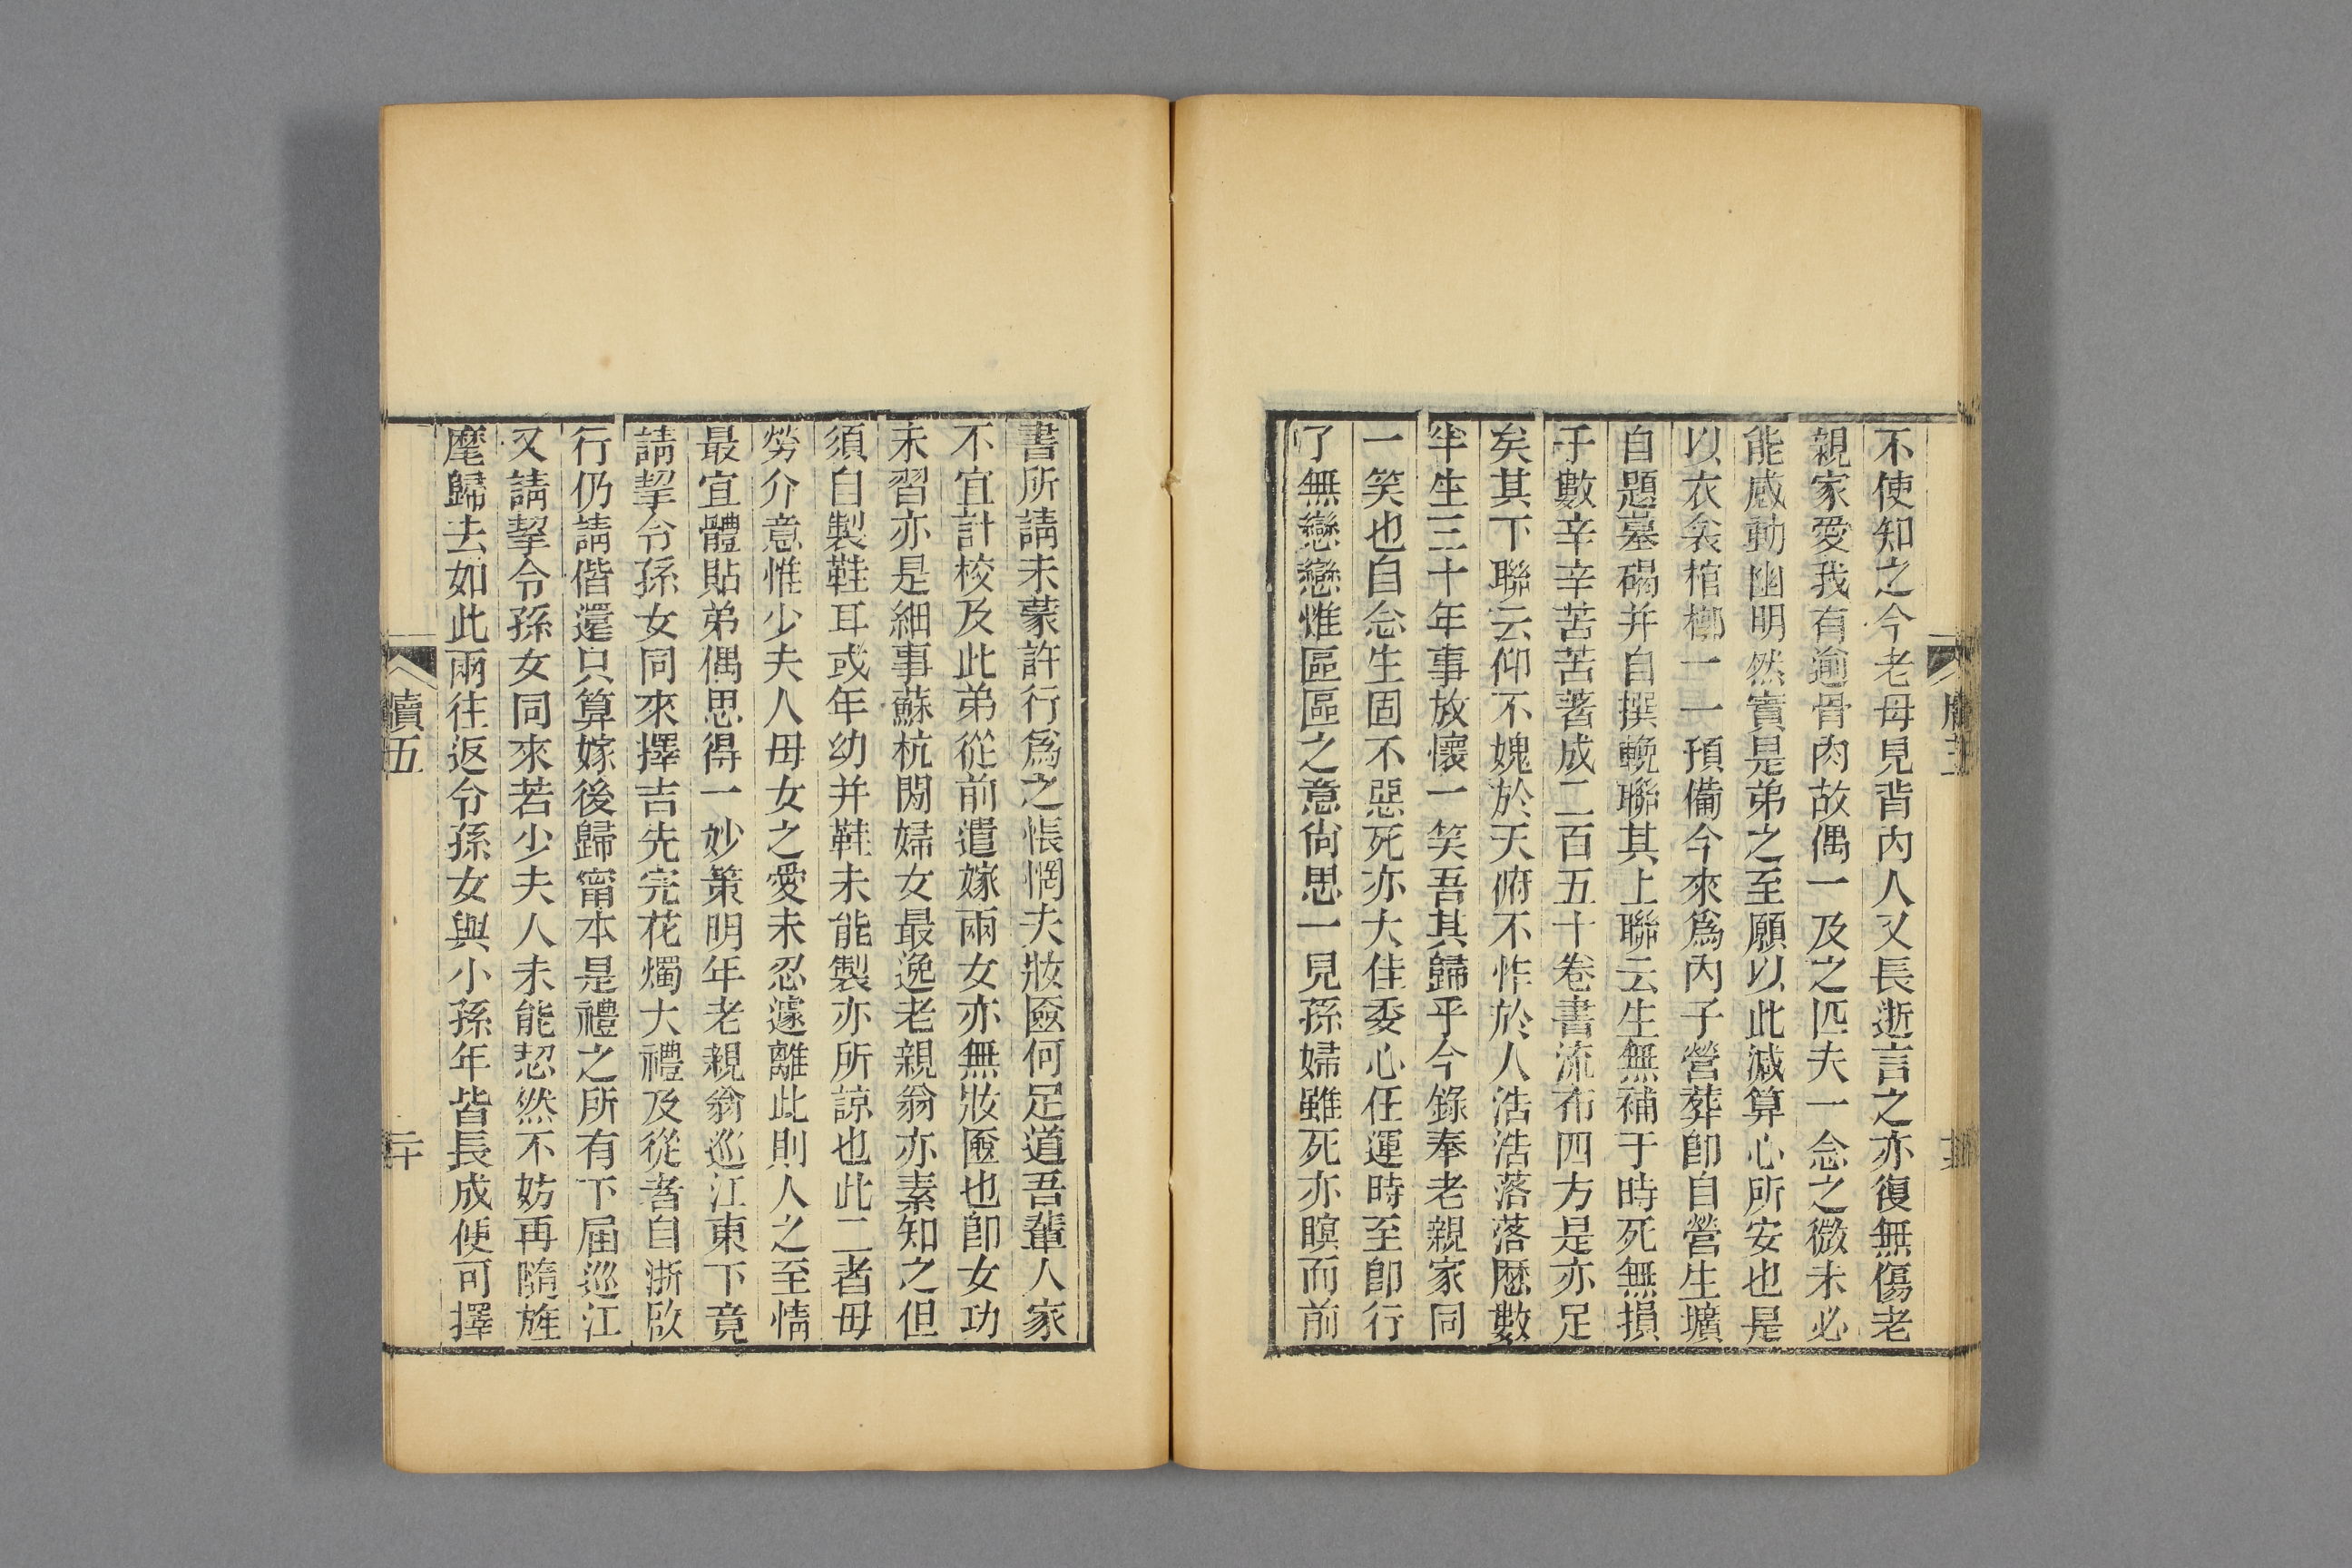 不使知之今老母見背內人又長逝言之亦復無傷老
親家愛我有逾骨肉故偶一及之匹夫一念之微未必
能感動幽明然實是弟之至願以此減算心所安也是
以衣衾棺槨一一預備今來爲內子營葬卽自營生壙
自題墓碣并自撰輓聯其上聯云生無補于時死無損
于數辛辛苦苦著成二百五十卷書流布四方是亦足
矣其下聯云仰不媿於天俯不怍於人浩浩落落歷數
半生三十年事放懷一笑吾其歸乎今錄奉老親家同
一笑也自念生固不惡死亦大佳委心任運時至卽行
了無戀戀惟區區之意尙思一見孫婦雖死亦瞑而前
書所請未蒙許行爲之悵惘夫妝匳何足道吾輩人家
不宜計校及此弟從前遣嫁兩女亦無妝匳也卽女功
未習亦是細事蘇杭閒婦女最逸老親翁亦素知之但
須自製鞋耳或年幼并鞋未能製亦所諒也此二者毋
勞介意惟少夫人母女之愛未忍遽離此則人之至情
最宜體貼弟偶思得一妙策明年老親翁巡江東下竟
請挈令孫女同來擇吉先完花燭大禮及從者自浙啟
行仍請偕還只算嫁後歸甯本是禮之所有下屆巡江
又請挈令孫女同來若少夫人未能恝然不妨再隨旌
麾歸去如此兩往返令孫女與小孫年皆長成便可擇
牘五
二十